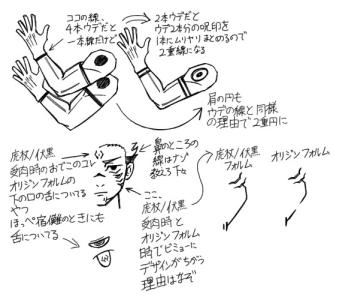 ココの線、
4本ウデだと
一本線だけど
2本ウデだと
ウデ2本分の呪印を
1本にムリヤリまとめるので
2重線になる
肩の円も
ウデの線と同様
の理由で2重円に
虎杖/伏黒
受肉時のおでこのコレ
オリジンフォルムの
下の口の舌についてる
やつ
ほっぺ宿儺のときにも
舌についてる
鼻のところの
線はナゾ
教える下々
ここ、
虎杖/伏黒
受肉時と
オリジンフォルム
時でビミョーに
デザインがちがう
理由はなぞ
虎杖/伏黒
フォルム
オリジンフォルム